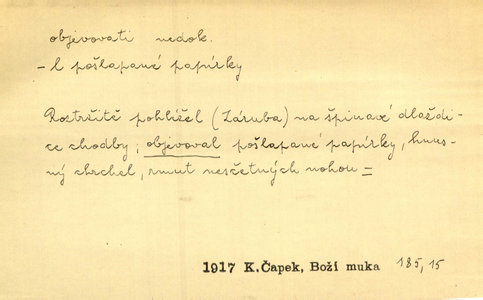 objevovati nedok.
– l pošlapané papírky
Roztržitě pohlížel (Záruba) na špinavé dlaždi-
ce chodby; objevoval pošlapané papírky, hnus-
ný chrchel, smut nesčetných nohou =
1917 K.Čapek, Boží muka 185,15